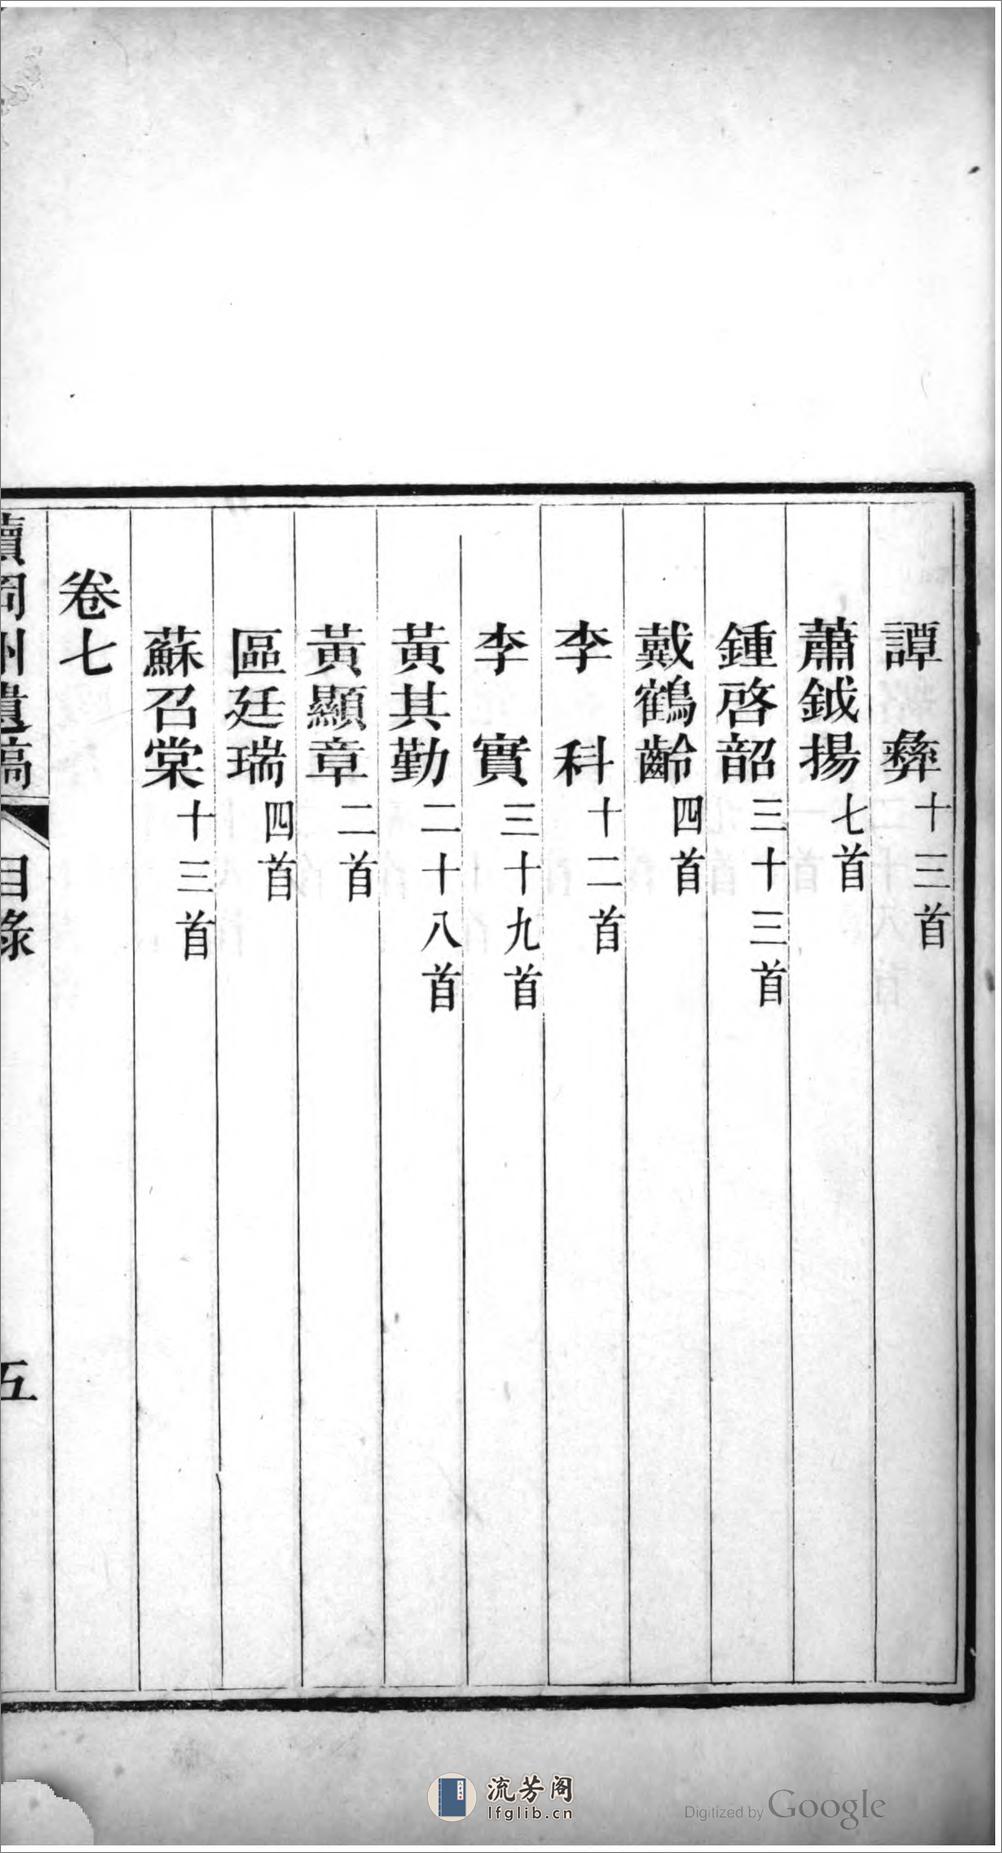 譚　彝十三首
蕭鉞揚七首
鍾啓韶三十三首
戴鶴齡四首
李　科十二首
李　實三十九首
黃其勤二十八首
黃顯章二首
區廷瑞四首
蘇召棠十三首
卷七
續岡州遺稿　目錄　五
流芳阁
lfglib.cn
Digitized by Google